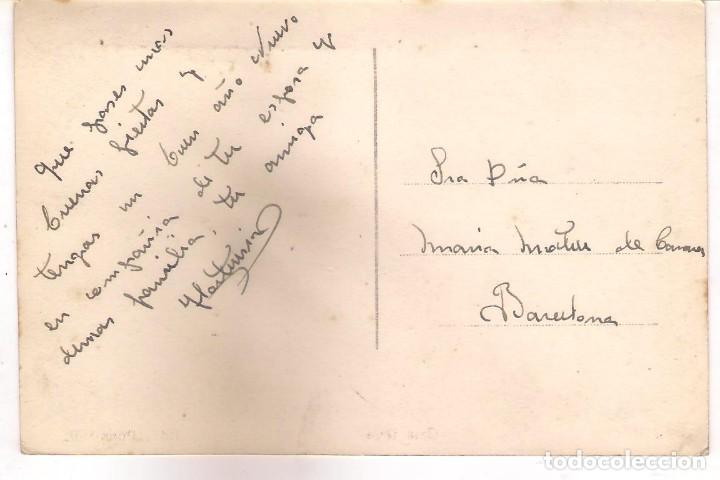 que pases unas
buenas fiestas y
tengas un buen año nuevo
en compañia de tu esposa y
demas familia, tu amiga
Sra Dña
Maria Mateu de
Barcelona
todocoleccion